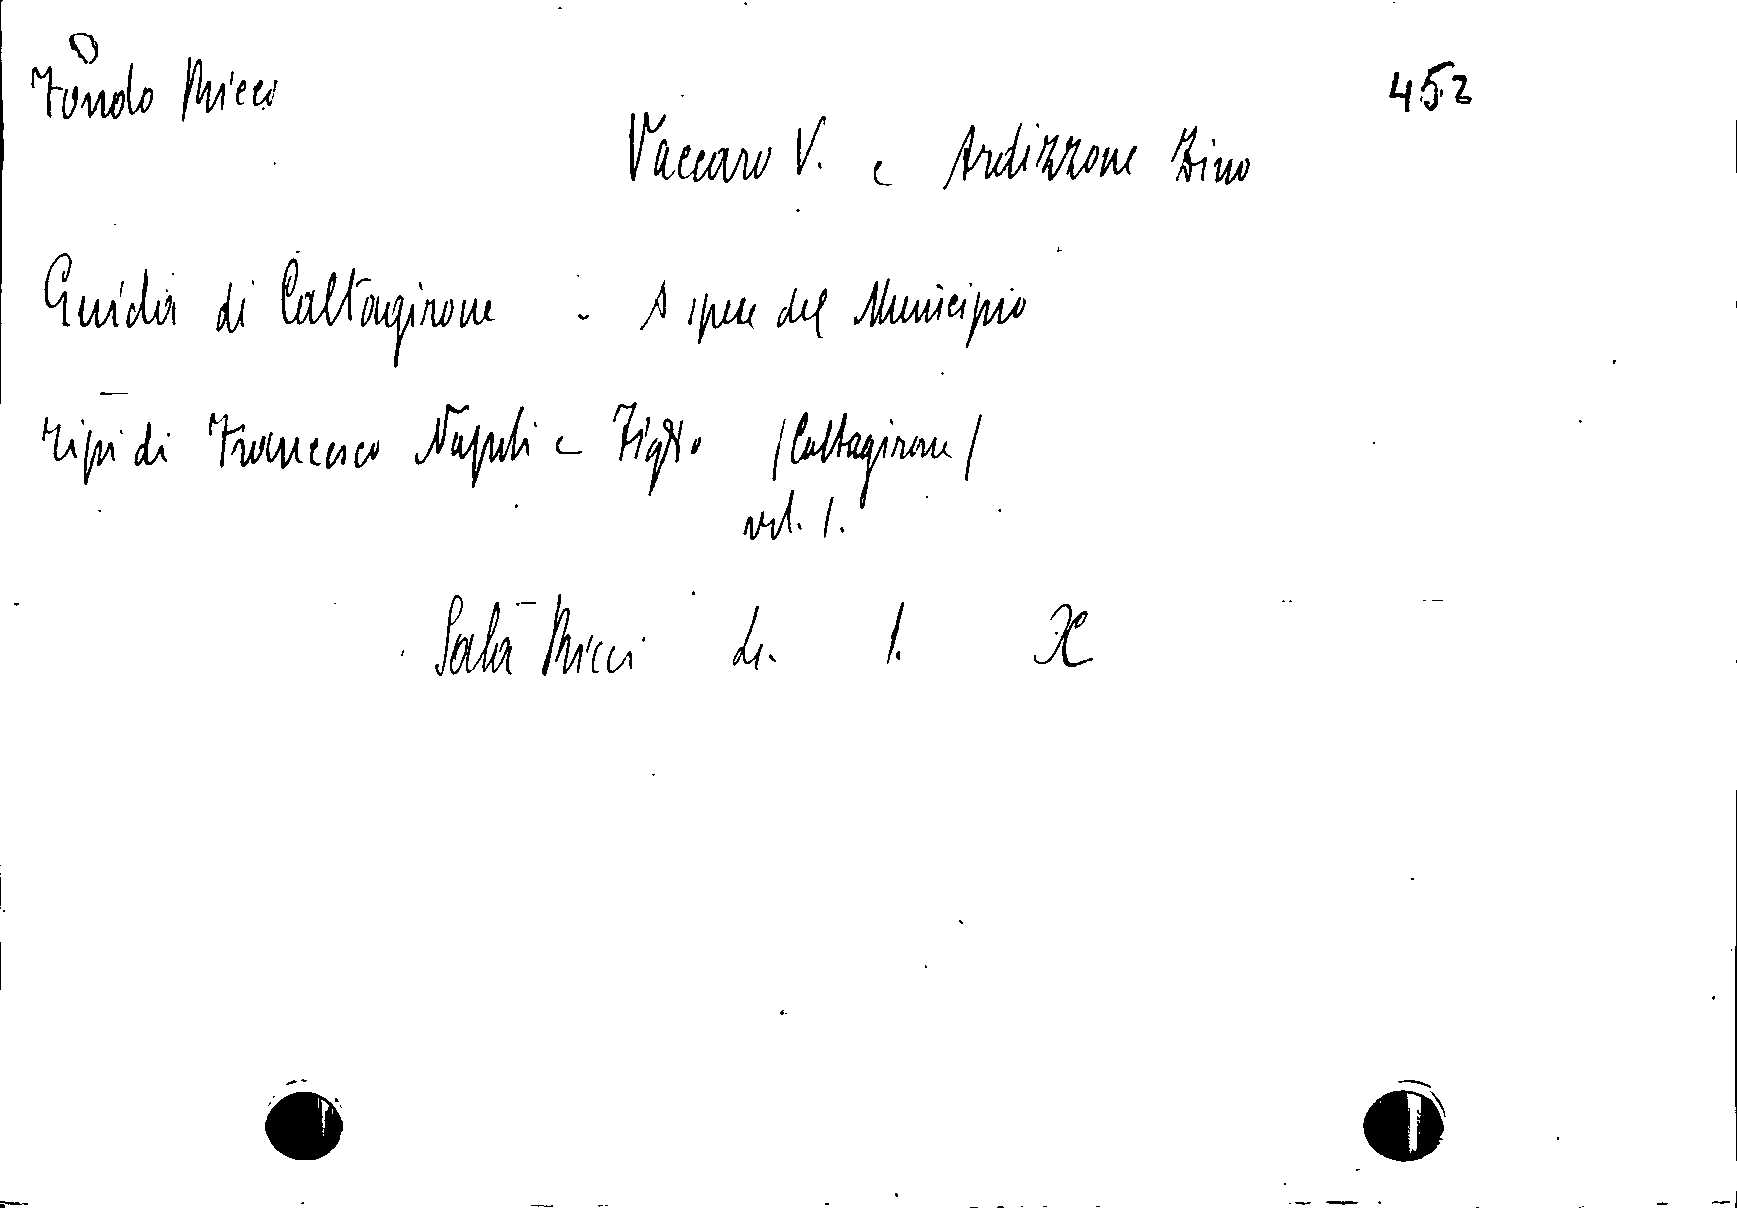 Fondo Ricci 452
Vaccaro V. e Ardizzone Zino
Guida di Caltagirone - A spese del Municipio
Tipi di Francesco Napoli e Figlio /Caltagirone/
vol. 1.
Sala Ricci 1. X